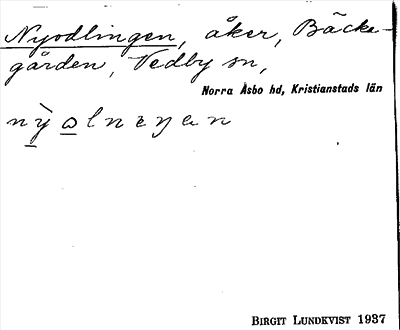 Nyodlingen, åker, Bäcke-
gården, Vedby sn,
Norra Åsbo hd, Kristianstads län
BIRGIT LUNDKVIST 1937